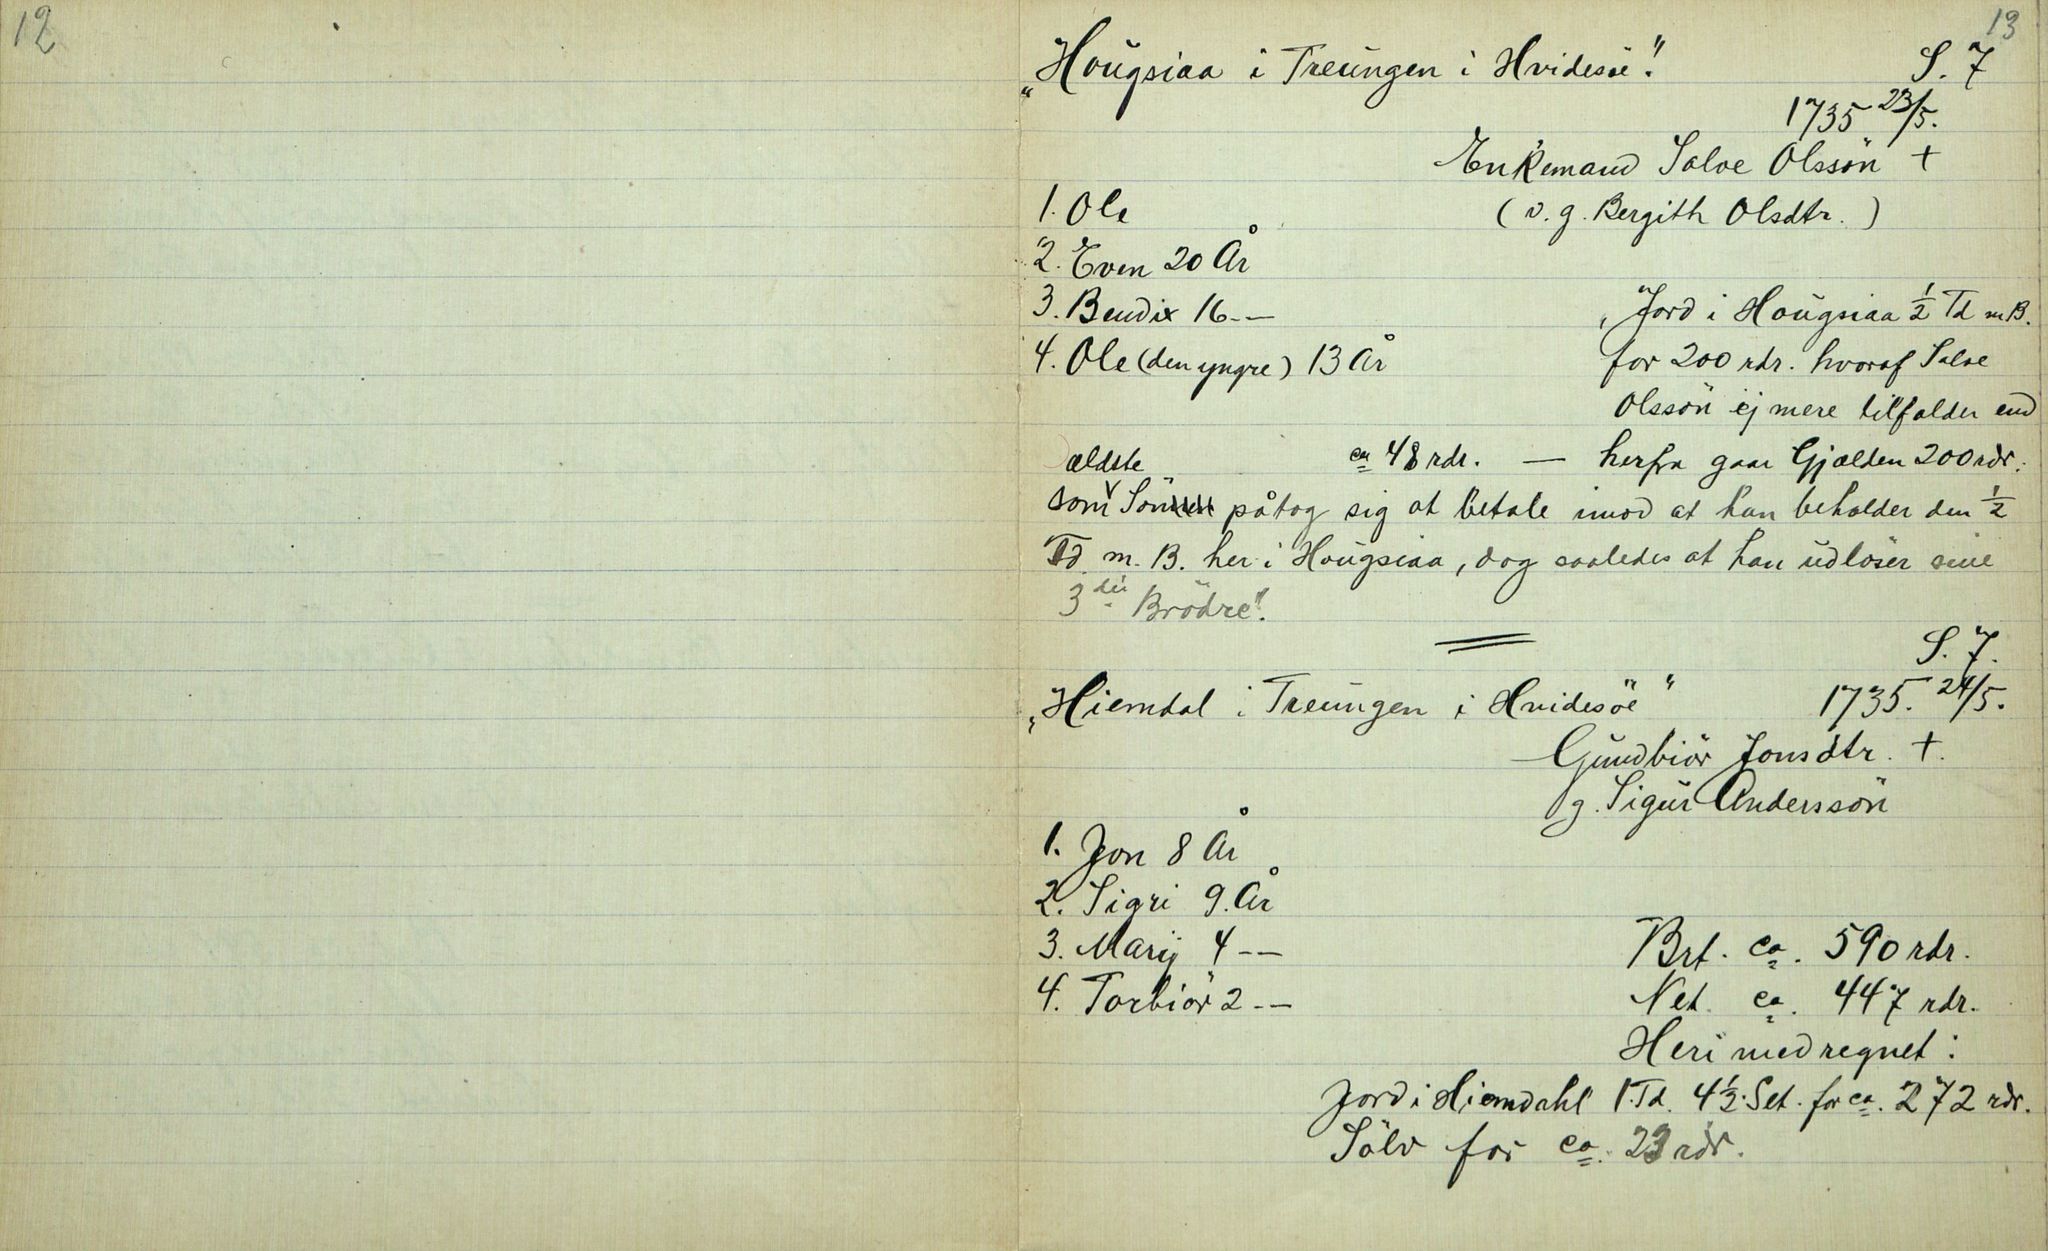 12
13
„Hoŭgsiaa i Treŭngen i Hvidesöe".
S. 7
1735 23/5.
Enkemand Salve Olssön +
1. Ole
(v. g. Bergith Olsdtr.)
2. Even 20 År
3. Bendix 16 --
„Jord i Hoŭgsiaa ½ Td m B.
4. Ole (den yngre) 13 År
for 200 rdr. hvoraf Salve
Olssön ej mere tilfalder end
ældste
ca 48 rdr. — herfra gaar Gjælden 200 rdr.
som Sön påtog sig at betale imod at han beholder den ½
Td. m. B. her i Hoŭgsiaa, dog saaledes at han ŭdlöser sine
3 de Brödre".
S. 7.
„Hiemdal i Treŭngen i Hvidesöe"
1735. 24/5.
Gŭndbiör Jonsdtr. +.
g. Sigŭr Anderssön
1. Jon 8 År
2. Sigri 9. År
3. Marij 4 --
Brt. ca. 590 rdr.
4. Torbiör 2 --
Net. ca. 447 rdr.
Heri medregnet:
Jord i Hiemdahl 1 Td. 4½ Set. for ca. 272 rdr.
Sölv for ca. 23 rdr.